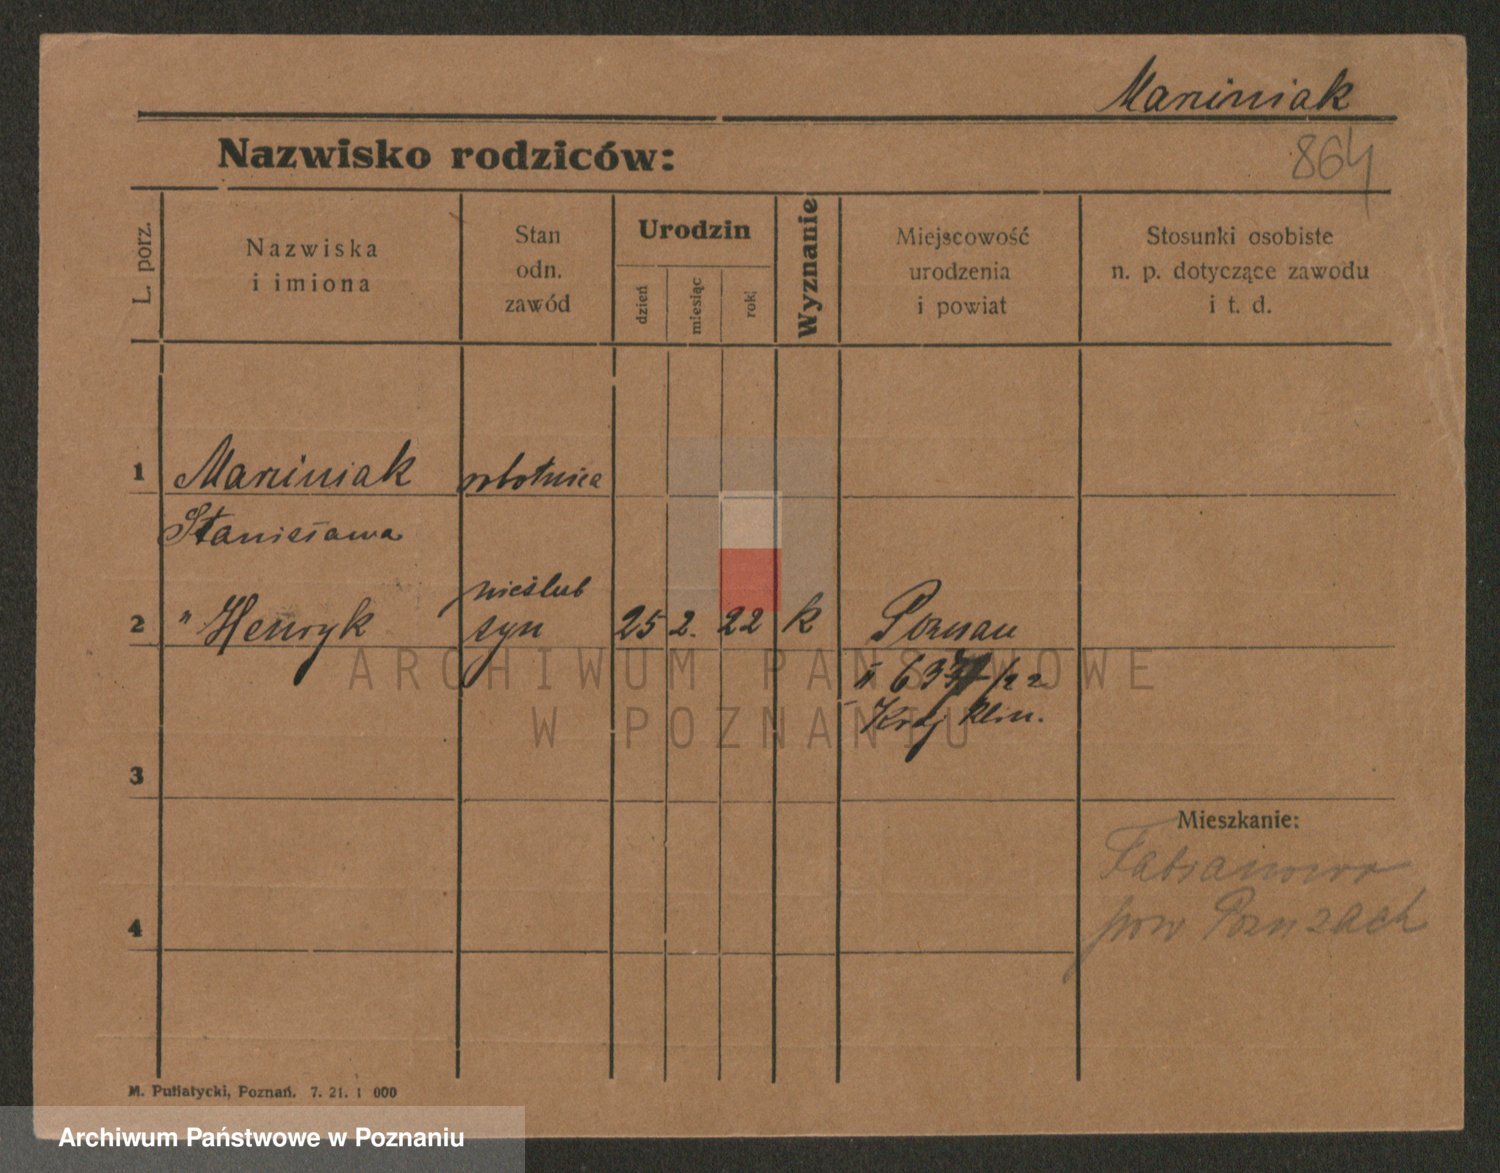 Marciniak
864
Nazwisko rodziców:
L. porz.
Nazwiska
i imiona
Stan
odn.
zawód
Urodzin
dzień
miesiąc
rok
Wyznanie
Miejscowość
urodzenia
i powiat
Stosunki osobiste
n. p. dotyczące zawodu
i t. d.
1 Marciniak robotnica
Stanisława
nieślub
2 " Henryk syn 25 2. 22 k Poznań
ARCHIWUM PAŃSTWOWE
W POZNANIU
II /22
Kraj klin.
3
Mieszkanie:
Fabianowo
pow Pozn zach
4
M. Putiatycki, Poznań. 7. 21. 1 000
Archiwum Państwowe w Poznaniu